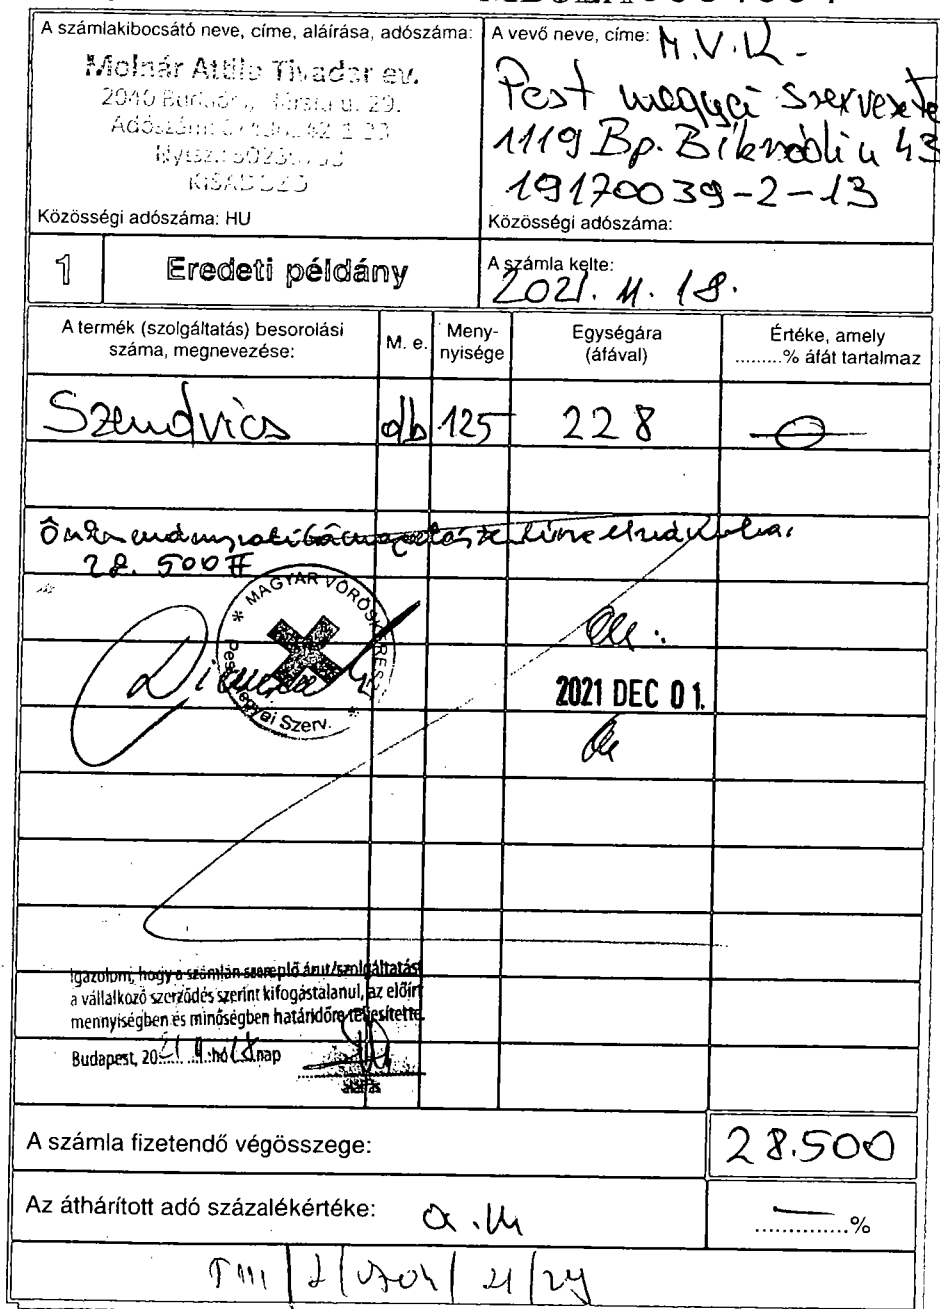 A számlakibocsátó neve, címe, aláírása, adószáma:
Molnár Attila Tivadar ev.
2040 u. 29.
KISADÓZÓ
Közösségi adószáma: HU
A vevő neve, címe: M.V.K.
Pest megyei Szervezete
1119 Bp. Bikszádi u 43
19170039-2-13
Közösségi adószáma:
1 Eredeti példány
A számla kelte:
2021. 11. 18.
A termék (szolgáltatás) besorolási
száma, megnevezése:
M. e.
Meny-
nyisége
Egységára
(áfával)
Értéke, amely
.........% áfát tartalmaz
Szendvics db 125 228
28.500 Ft
MAGYAR VÖRÖSKERESZT
Pest Megyei Szerv.
2021 DEC 01.
Igazolom, hogy a számlán szereplő árut/szolgáltatást
a vállalkozó szerződés szerint kifogástalanul, az előírt
mennyiségben és minőségben határidőre teljesítette.
Budapest, 2021 11 hó 18 nap
aláírás
A számla fizetendő végösszege: 28.500
Az áthárított adó százalékértéke: a.m ..............%